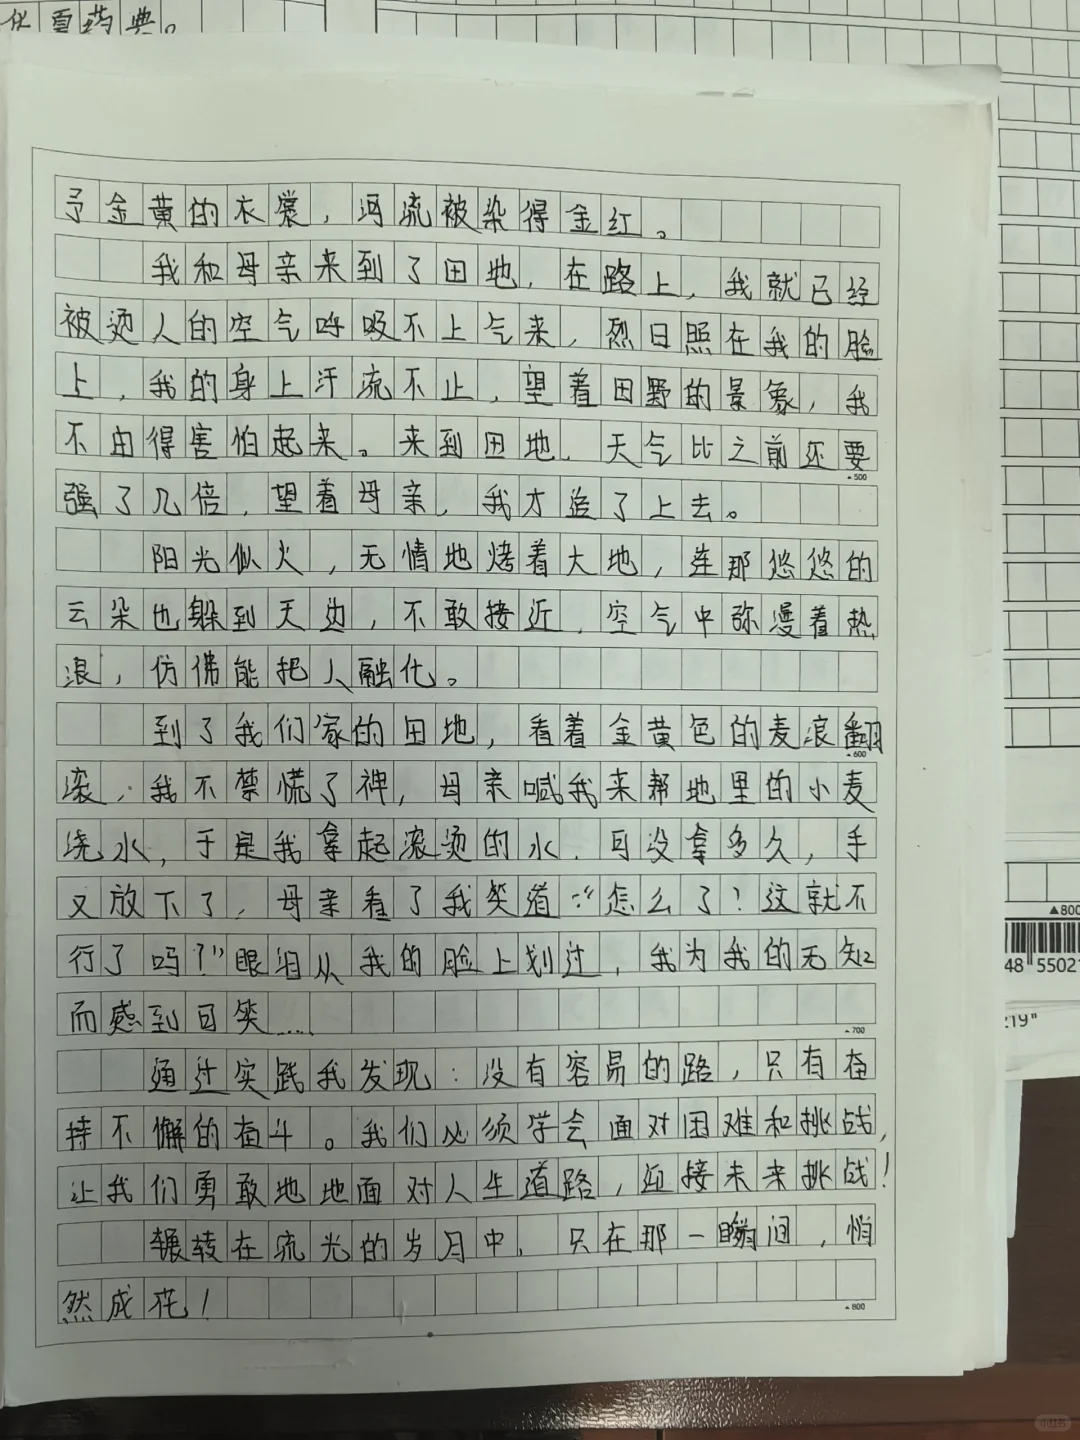 华夏药典。
予金黄的衣裳，河流被染得金红。
我和母亲来到了田地，在路上，我就已经
被烫人的空气呼吸不上气来，烈日照在我的脸
上，我的身上汗流不止，望着田野的景象，我
不由得害怕起来。来到田地，天气比之前还要
▲500
强了几倍，望着母亲，我才追了上去。
阳光似火，无情地烤着大地，连那悠悠的
云朵也躲到天边，不敢接近，空气中弥漫着热
浪，仿佛能把人融化。
到了我们家的田地，看着金黄色的麦浪翻
▲600
滚，我不禁慌了神，母亲喊我来帮地里的小麦
浇水，于是我拿起滚烫的水，可没拿多久，手
又放下了，母亲看了我笑道：“怎么了？这就不
行了吗？”眼泪从我的脸上划过，我为我的无知
而感到可笑……
▲700
通过实践我发现：没有容易的路，只有奋
持不懈的奋斗。我们必须学会面对困难和挑战，
让我们勇敢地地面对人生道路，迎接未来挑战！
辗转在流光的岁月中，只在那一瞬间，悄
然成花！
▲800
▲800
48 55021
219"
小红书